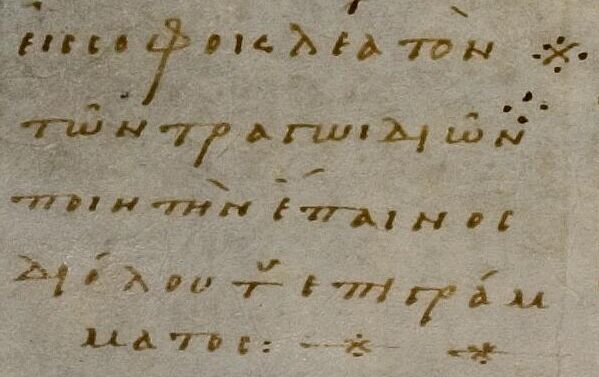 εἰς σοφοκλέα τὸν
τῶν τραγωιδιῶν
ποιητὴν ἔπαινος
δι᾽ ὅλου τ͂ ἐπιγράμ
ματος: